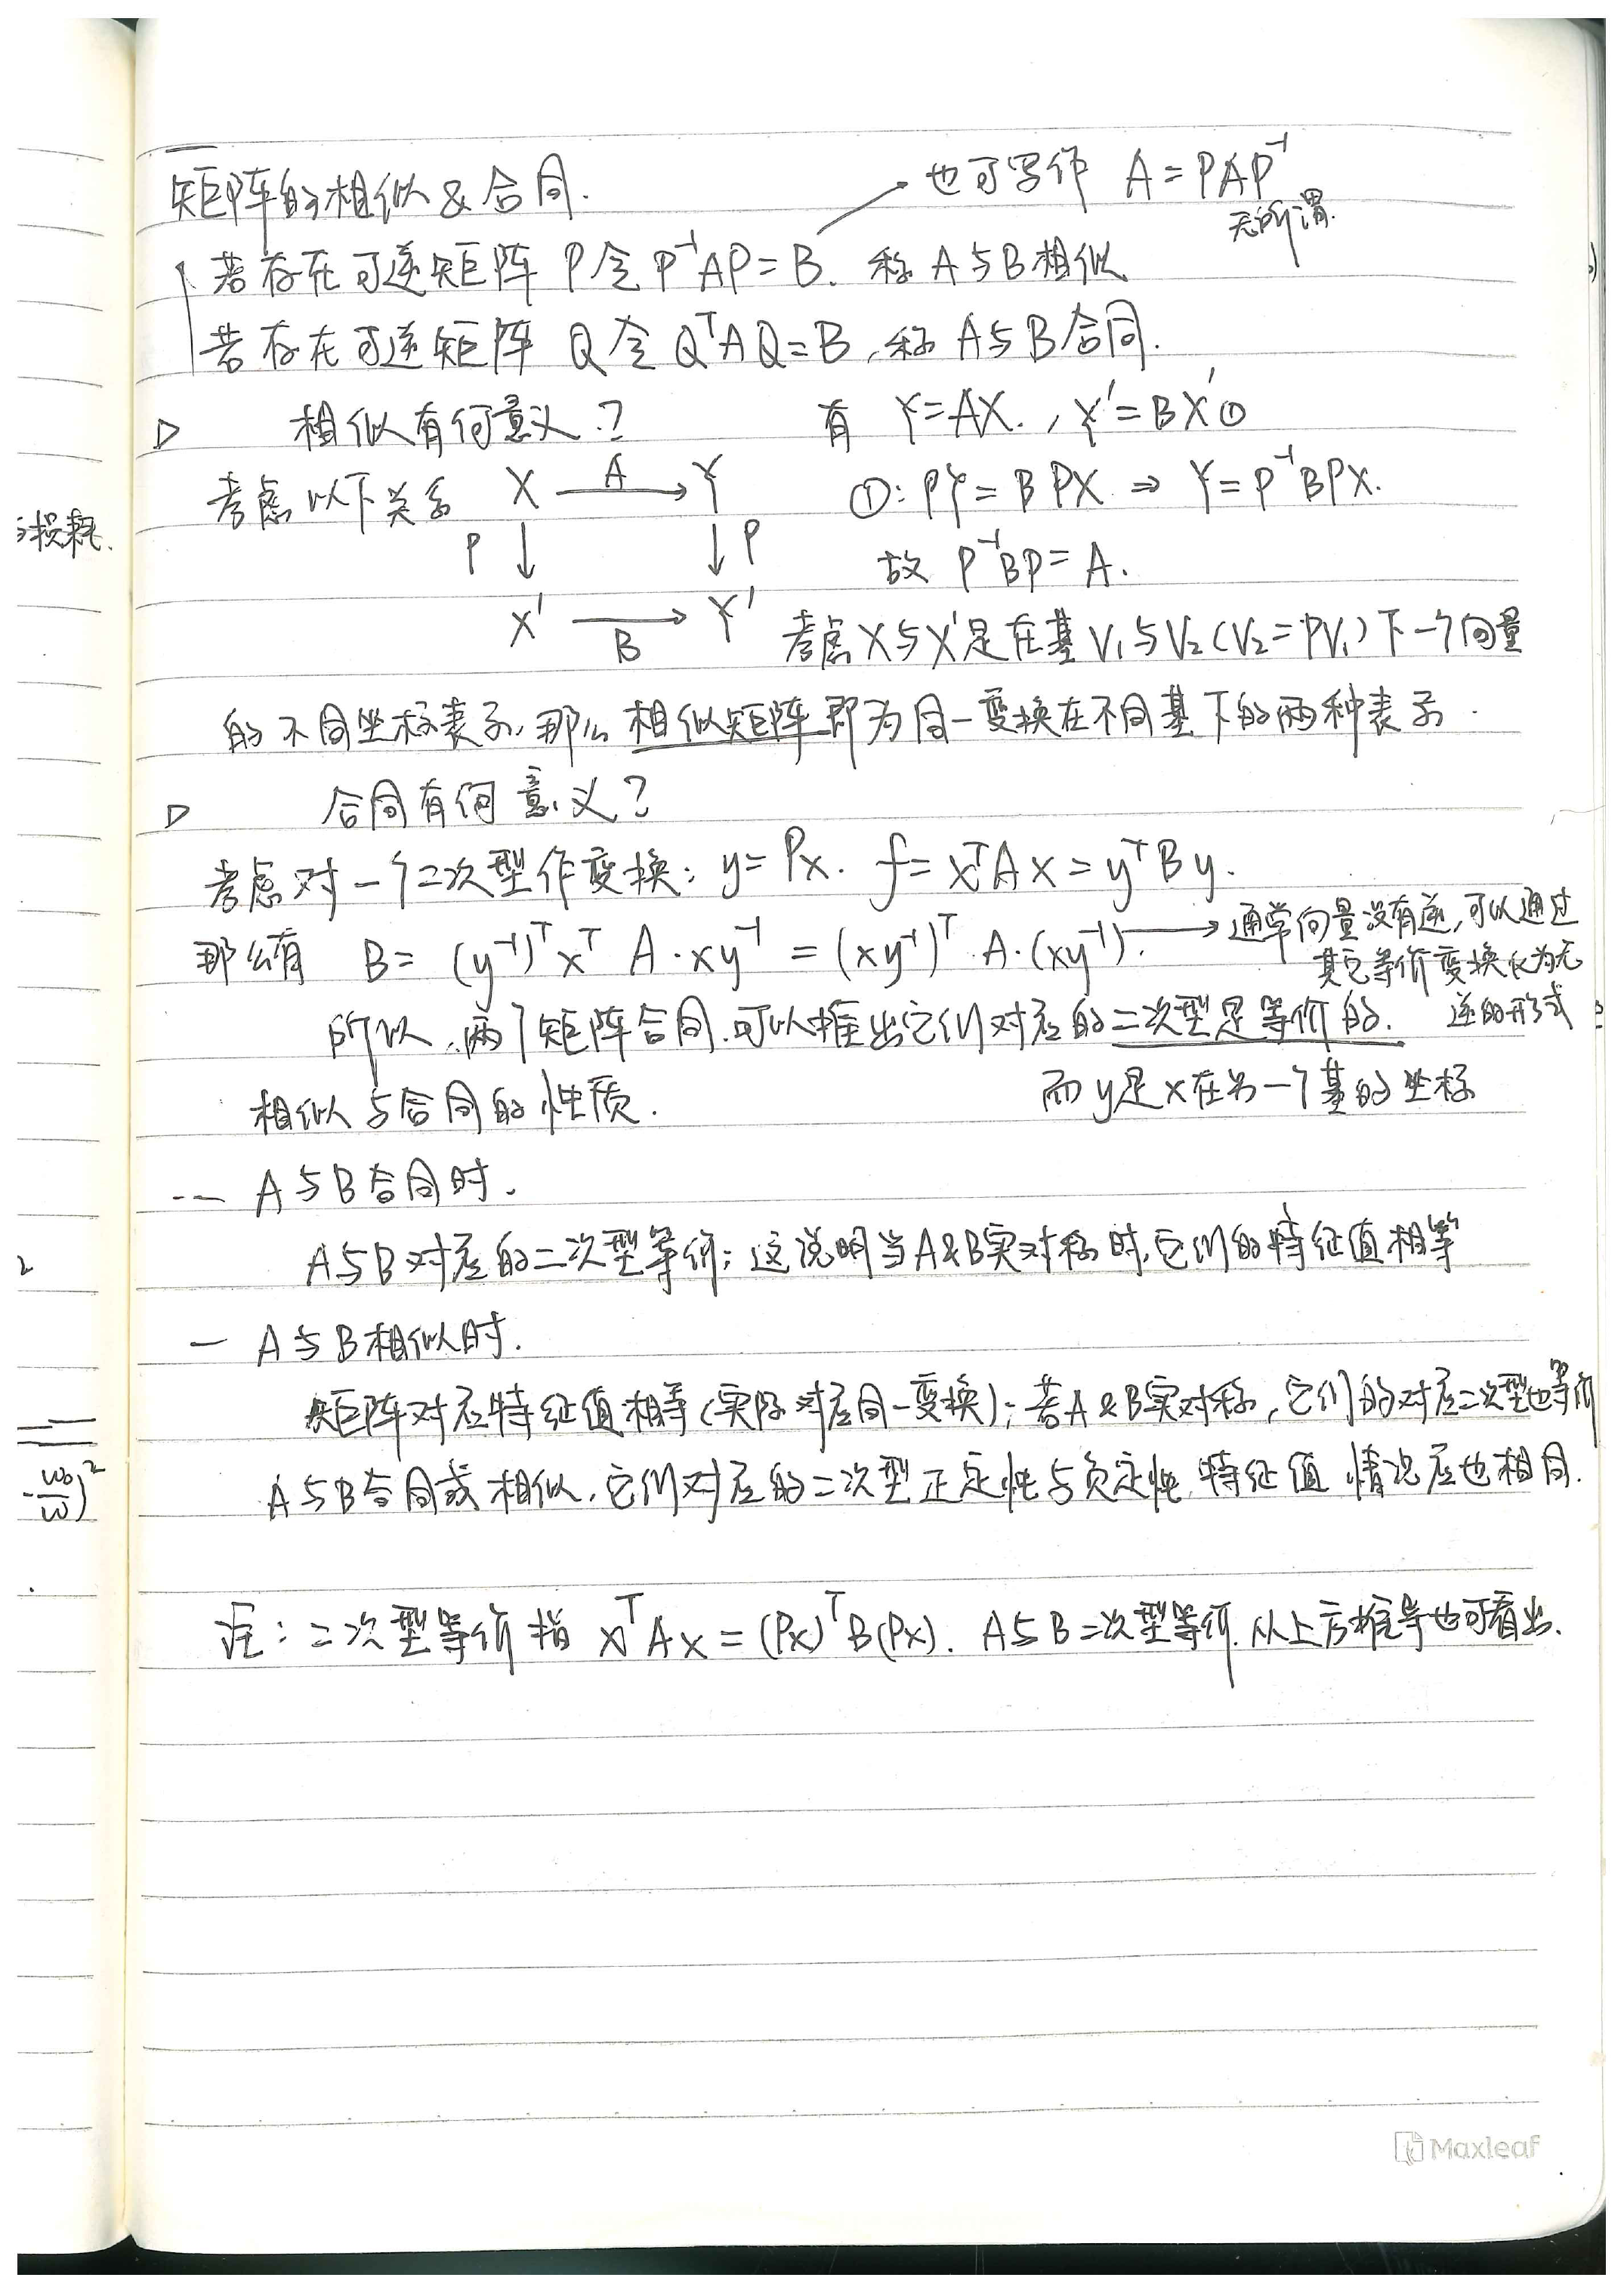 矩阵的相似&合同.
也可写作 A=PAP⁻¹
无所谓.
若存在可逆矩阵 P令 P⁻¹AP=B. 称A与B相似
若存在可逆矩阵 Q令 QᵀAQ=B,称A与B合同.
相似有何意义?
有 Y=AX., Y'=BX'①
考虑以下关系 X A Y
①: PY=BPX ⇒ Y=P⁻¹BPX.
P ↓ ↓ P
故 P⁻¹BP=A.
X' B Y'
考虑X与X'是在基V₁与V₂(V₂=PV₁)下一个向量
的不同坐标表示,那么相似矩阵即为同一变换在不同基下的两种表示.
合同有何意义?
考虑对一个二次型作变换: y=Px. f=xᵀAx=yᵀBy.
那么有 B=(y⁻¹)ᵀxᵀA·xy⁻¹=(xy⁻¹)ᵀA·(xy⁻¹).
→通常向量没有逆,可以通过
其它等价变换化为无
逆的形式
所以,两个矩阵合同.可以推出它们对应的二次型是等价的.
而y是x在另一个基的坐标
相似与合同的性质.
-- A与B合同时.
A与B对应的二次型等价;这说明当A&B实对称时,它们的特征值相等
- A与B相似时.
矩阵对应特征值相等(实际对应同一变换);若A&B实对称,它们的对应二次型也等价
A与B合同或相似,它们对应的二次型正定性与负定性,特征值 情况应也相同.
注:二次型等价指 xᵀAx=(Px)ᵀB(Px). A与B二次型等价.从上方推导也可看出.
损耗.
2
ω₀
-— )²
ω
Maxleaf